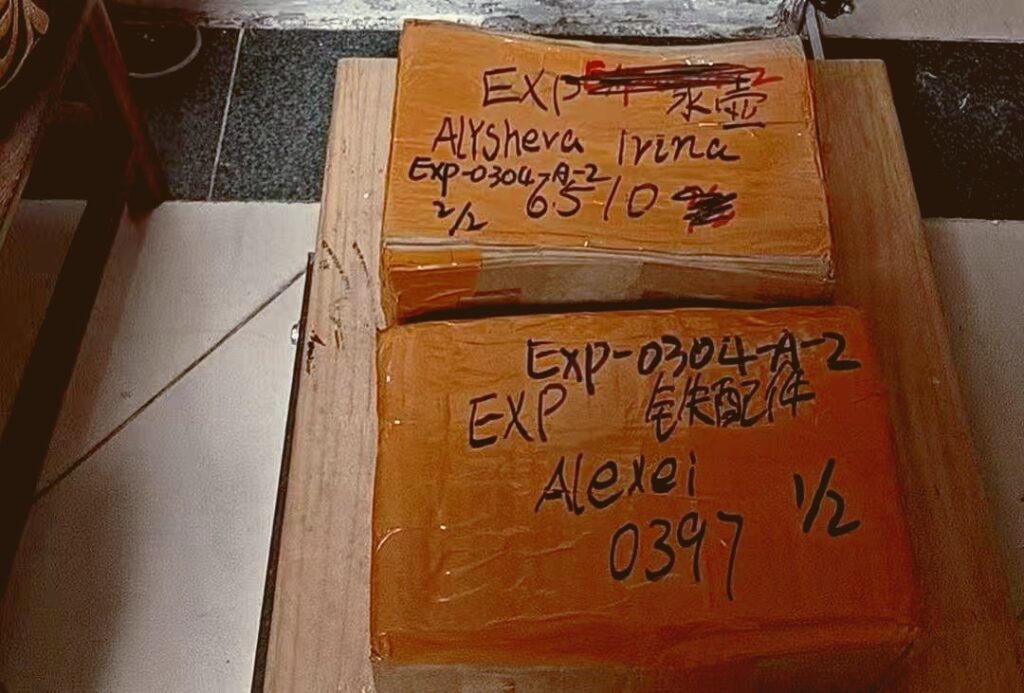 EXP 水壶
Alysheva Irina
EXP-0304-A-2
2/2 6510
Exp-0304-A-2
EXP 铁配件
Alexei
0397 1/2